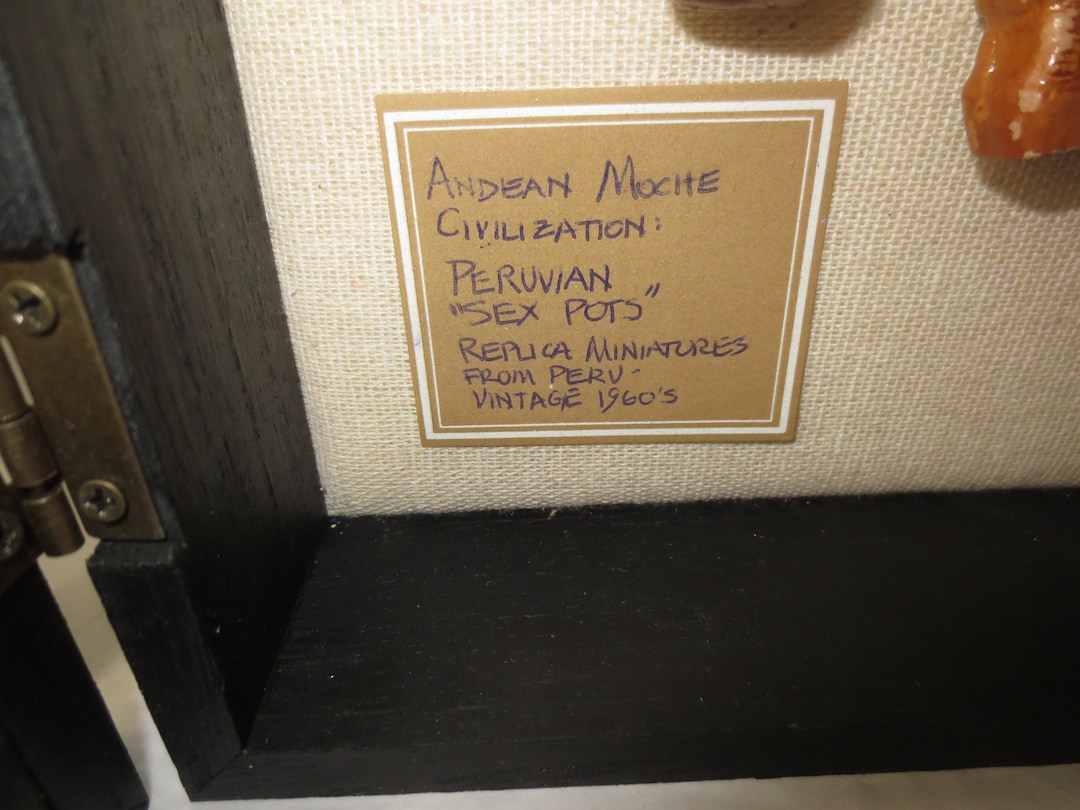 ANDEAN MOCHE
CIVILIZATION:
PERUVIAN
"SEX POTS"
REPLICA MINIATURES
FROM PERU-
VINTAGE 1960's